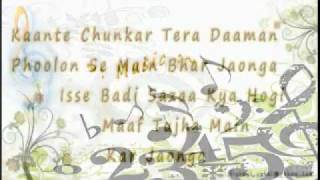 Kaante Chunkar Tera Daaman
Phoolon Se Main Bhar Jaonga
Isse Badi Sazaa Kya Hogi
Maaf Tujha Main
Kar Jaonga